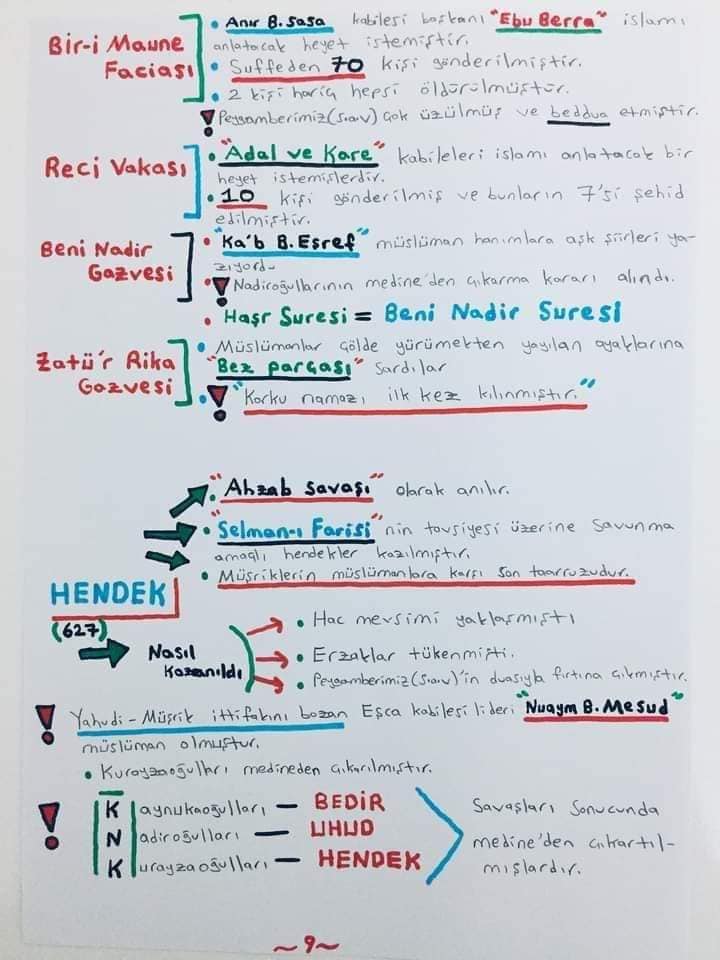 Bir-i Maune Faciası
• Anır B. Sasa kabilesi başkanı "Ebu Berra" islamı
anlatacak heyet istemiştir.
• Suffeden 70 kişi gönderilmiştir.
• 2 kişi hariç hepsi öldürülmüştür.
! Peygamberimiz(s.a.v) çok üzülmüş ve beddua etmiştir.
Reci Vakası
• "Adal ve Kare" kabileleri islamı anlatacak bir
heyet istemişlerdir.
• 10 kişi gönderilmiş ve bunların 7'si şehid
edilmiştir.
Beni Nadir Gazvesi
• "Ka'b B. Eşref" müslüman hanımlara aşk şiirleri ya-
zıyordu.
! Nadiroğullarının medine'den çıkarma kararı alındı.
• Haşr Suresi = Beni Nadir Suresi
Zatü'r Rika Gazvesi
• Müslümanlar çölde yürümekten yayılan ayaklarına
"Bez parçası" sardılar
• ! "Korku namazı ilk kez kılınmıştır."
HENDEK
(627)
• "Ahzab Savaşı" olarak anılır.
• "Selman-ı Farisi"nin tavsiyesi üzerine savunma
amaçlı hendekler kazılmıştır.
• Müşriklerin müslümanlara karşı son taarruzudur.
Nasıl
Kazanıldı
• Hac mevsimi yaklaşmıştı
• Erzaklar tükenmişti.
• Peygamberimiz(s.a.v)'in duasıyla fırtına çıkmıştır.
! Yahudi - Müşrik ittifakını bozan Eşca kabilesi lideri "Nuaym B. Mesud"
müslüman olmuştur.
• Kurayzaoğulları medineden çıkarılmıştır.
! Kaynukaoğulları — BEDİR
Nadiroğulları — UHUD
Kurayzaoğulları — HENDEK
Savaşları Sonucunda
medine'den çıkartıl-
mışlardır.
~9~